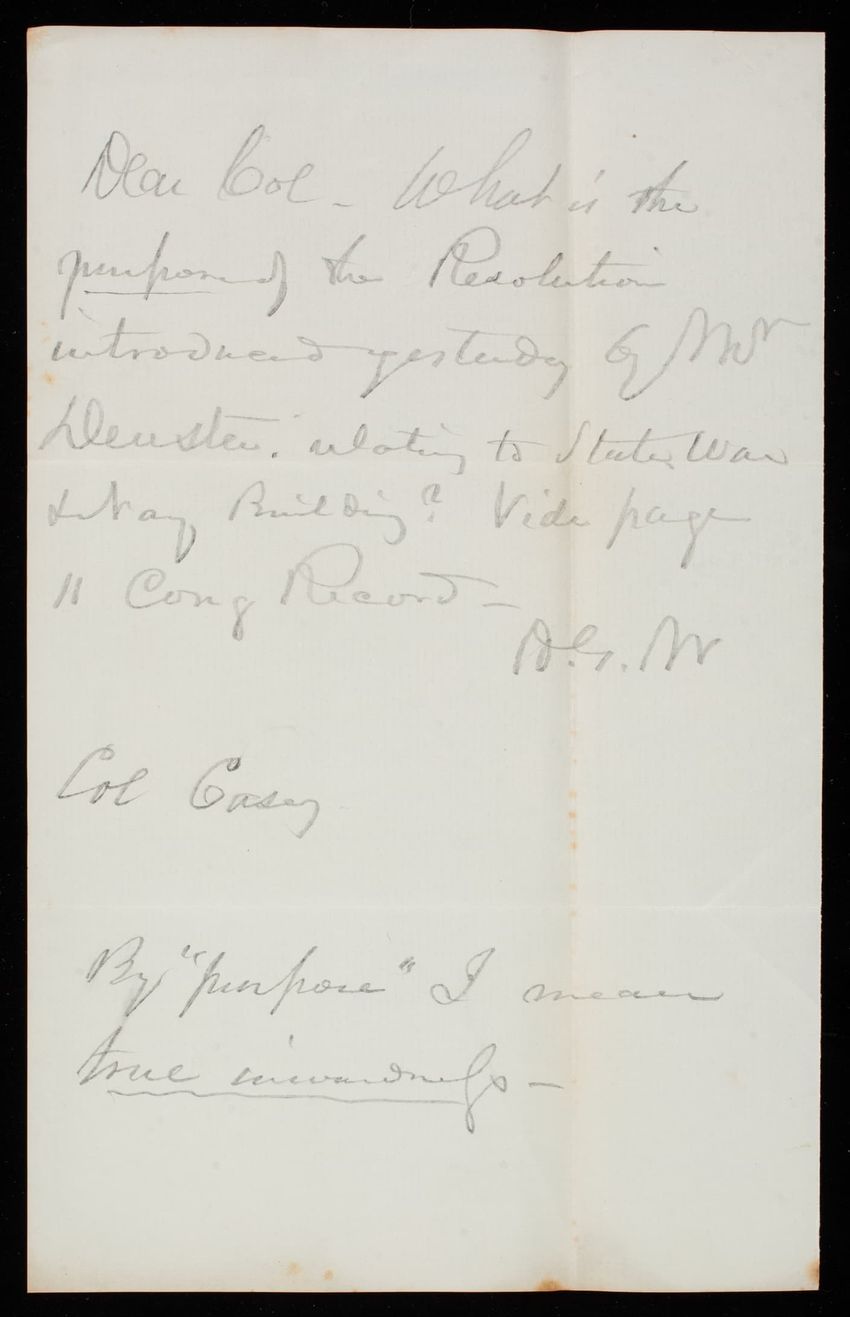 Dear Col - What is the
purpose of the Resolution
introduced yesterday by Mr
Deuster. relating to State, War
& Navy Building? Vide page
11 Cong Record -
Col Casey
By "purpose" I mean
true inwardness -